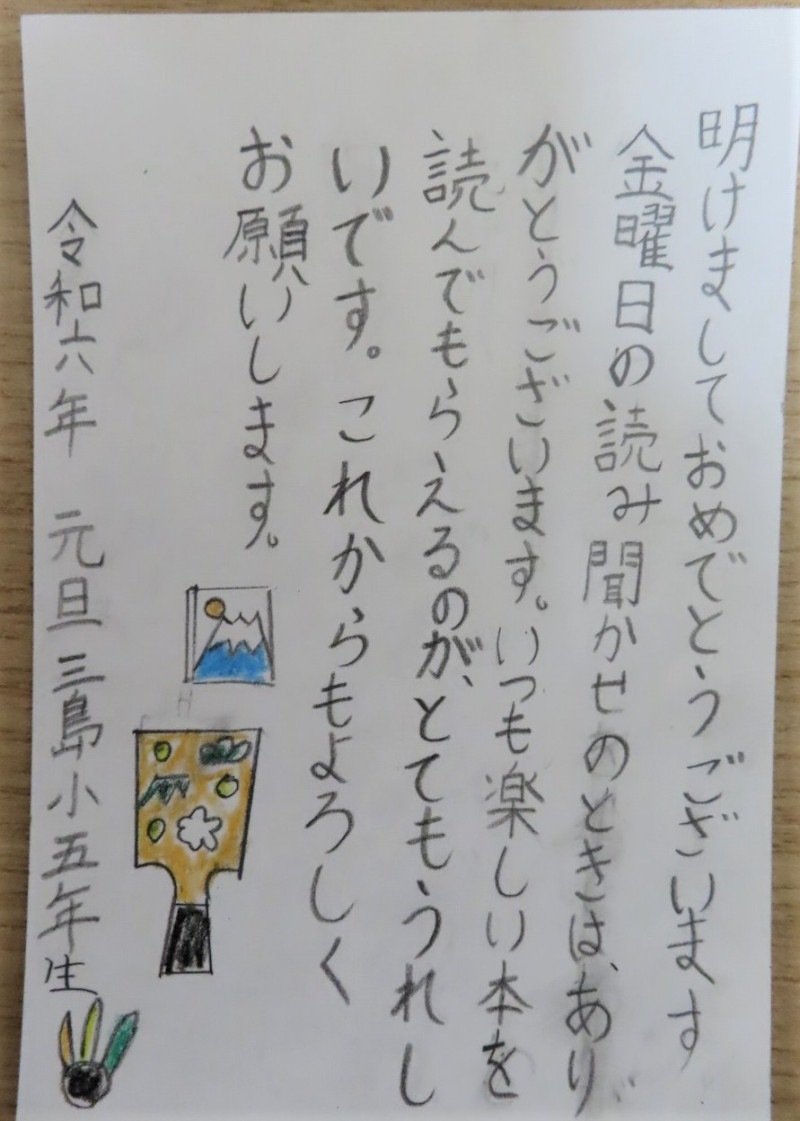 明けましておめでとうございます
金曜日の読み聞かせのときは、あり
がとうございます。いつも楽しい本を
読んでもらえるのが、とてもうれし
いです。これからもよろしく
お願いします。
令和六年 元旦 三島小五年生